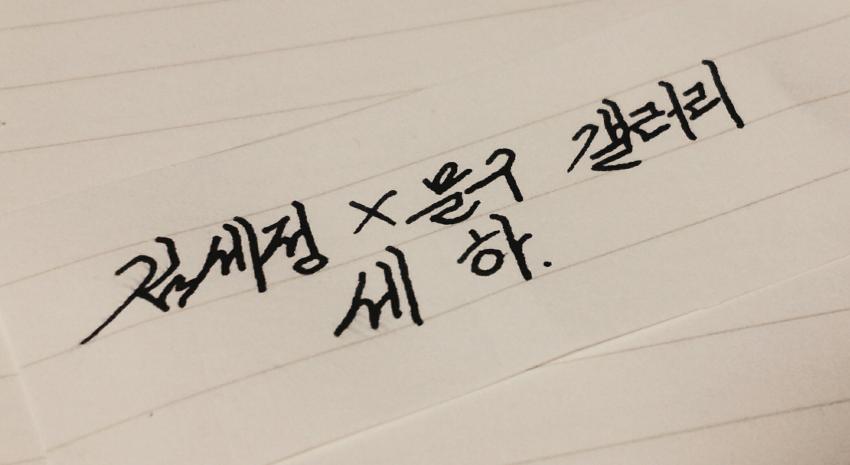 김세정 × 문구 갤러리
세 하.